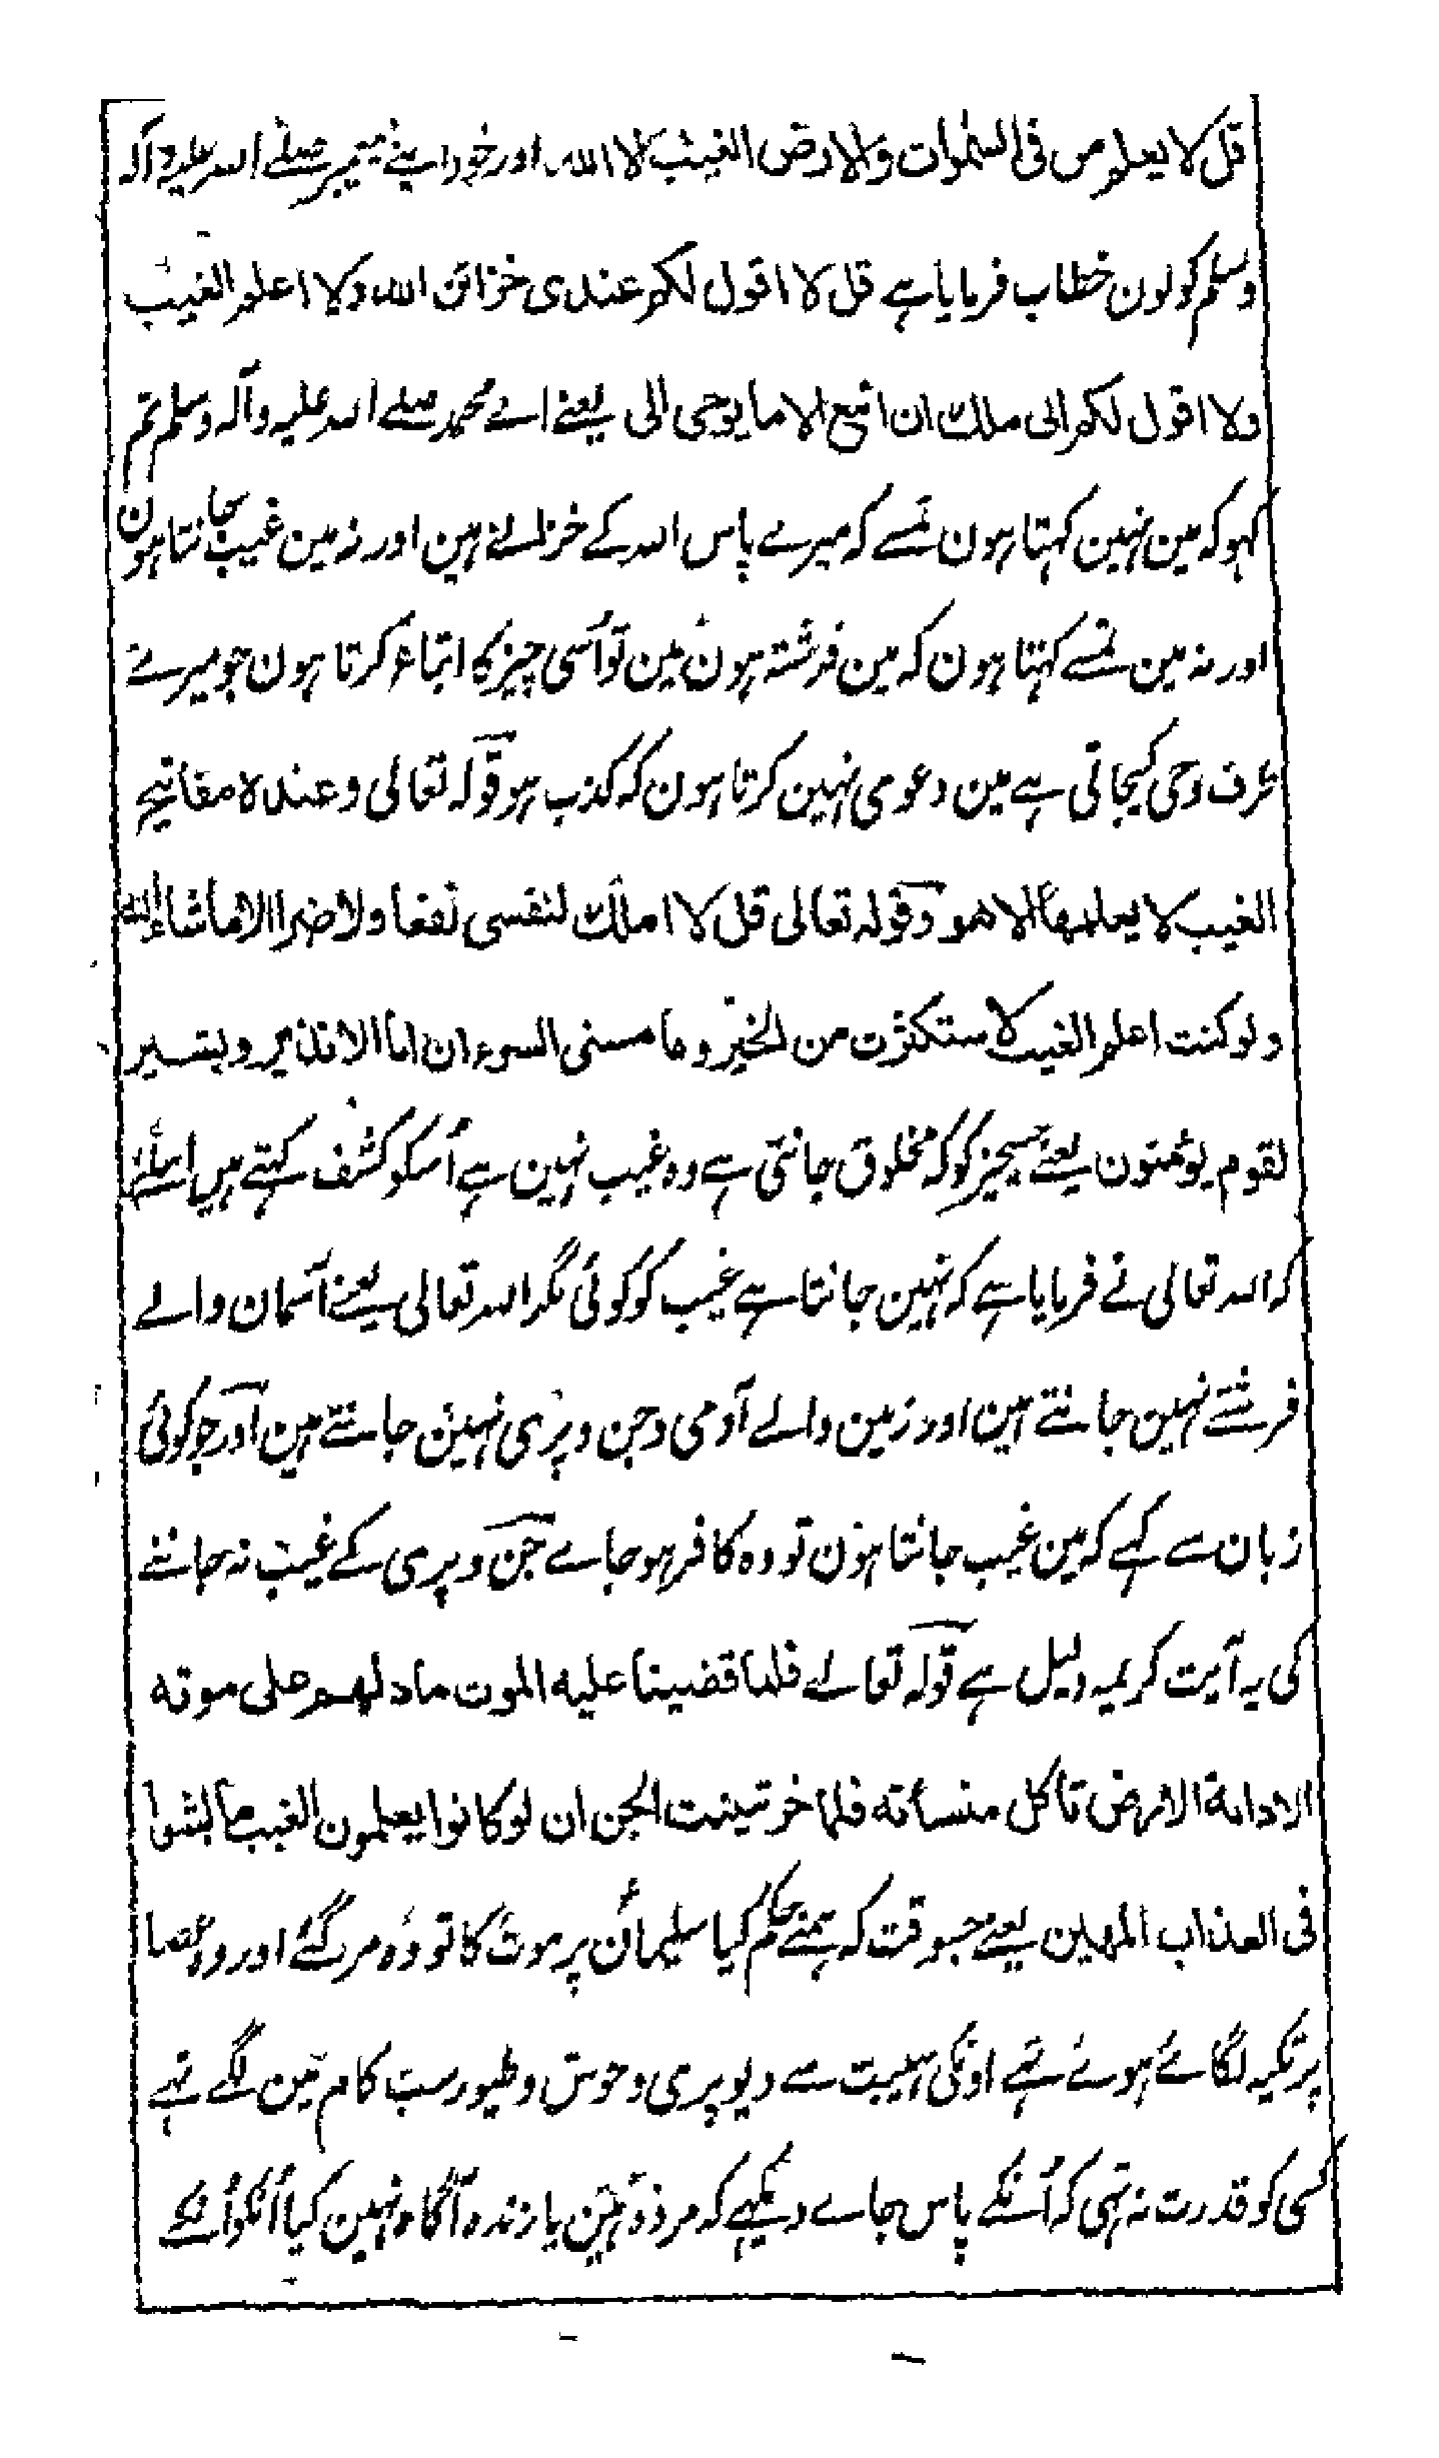 قل لا یعلم من فی السموات والارض الغیب الا الله اور خود اپنے پیغمبر صلے اللہ علیہ وآلہ
وسلم کو یون خطاب فرمایا ہے قل لا اقول لکم عندی خزائن الله ولا اعلم الغیب
ولا اقول لکم انی ملک ان اتبع الا ما یوحی الی یعنے اے محمد صلے اللہ علیہ وآلہ وسلم تم
کہو کہ مین نہین کہتا ہون تمسے کہ میرے پاس اللہ کے خزانے ہین اور نہ مین غیب جانتا ہون
اور نہ مین تمسے کہتا ہون کہ مین فرشتہ ہون مین تو اُسی چیز کا اتباع کرتا ہون جو میرے
طرف وحی کیجاتی ہے مین دعوی نہین کرتا ہون کہ کذب ہو قولہ تعالی وعندہ مفاتیح
الغیب لا یعلمها الا هو وقولہ تعالی قل لا املک لنفسی نفعا ولا ضرا الا ماشاء الله
ولو کنت اعلم الغیب لاستکثرت من الخیر وما مسنی السوء ان انا الا نذیر وبشیر
لقوم یؤمنون یعنے جسچیز کو کہ مخلوق جانتی ہے وہ غیب نہین ہے اُسکو کشف کہتے ہیں اسلئے
کہ اللہ تعالی نے فرمایا ہے کہ نہین جانتا ہے غیب کو کوئی مگر اللہ تعالی یعنے آسمان والے
فرشتے نہین جانتے ہین اور زمین والے آدمی وجن وپری نہین جانتے ہین اور جو کوئی
زبان سے کہے کہ مین غیب جانتا ہون تو وہ کافر ہو جاے جن وپری کے غیب نہ جاننے
کی یہ آیت کریمہ دلیل ہے قولہ تعالے فلما قضینا علیه الموت ما دلهم علی موته
الا دابة الارض تاکل منسأته فلما خر تبینت الجن ان لو کانوا یعلمون الغیب ما لبثوا
فی العذاب المهین یعنے جسوقت کہ ہمنے حکم کیا سلیمانؑ پر موت کا تو وہ مر گئے اور وہ عصا
پر تکیہ لگائے ہوئے تہے اونکی ہیبت سے دیو پری وحوش وطیور سب کام مین لگے تہے
کسی کو قدرت نہ تہی کہ اُنکے پاس جاے دیکہے کہ مردہ ہین یا زندہ آگاہ نہین کیا اُنکو اُنکے